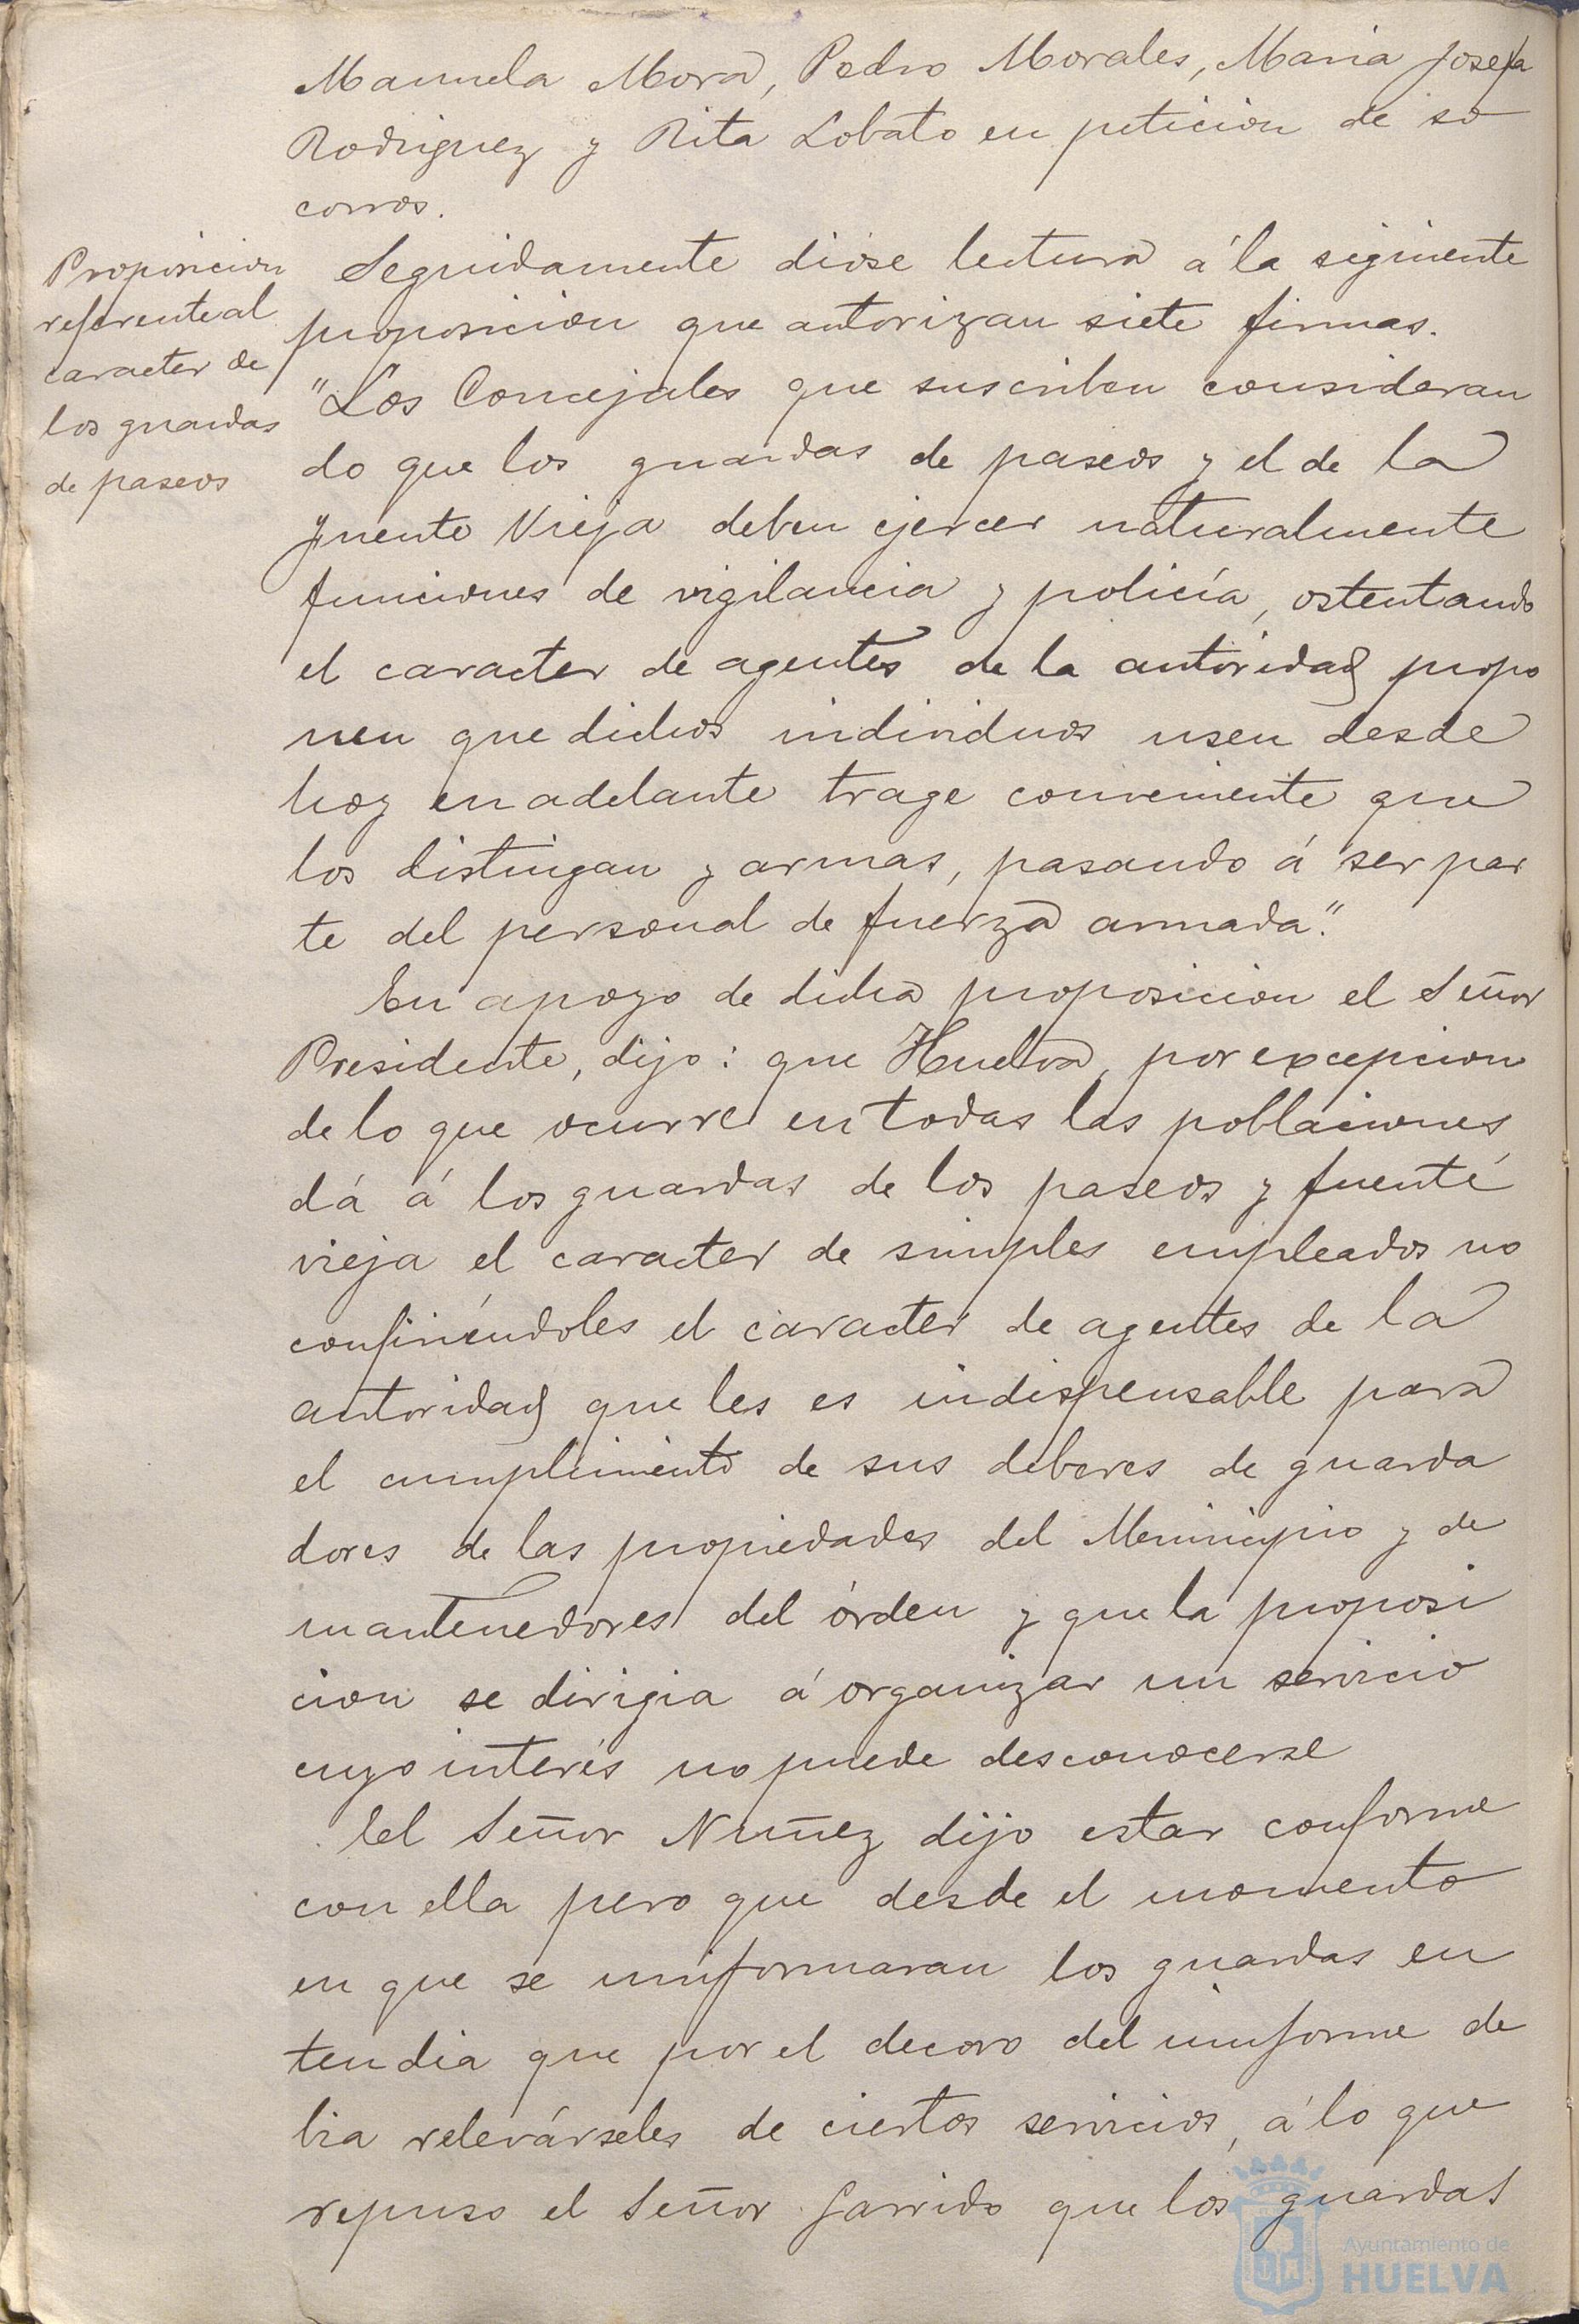 Manuela Mora, Pedro Morales, Maria Josefa
Rodriguez y Rita Lobato en peticion de so
corros.
Proposicion
referente al
caracter de
los guardas
de paseos
Seguidamente dióse lectura á la siguiente
proposicion que autorizan siete firmas.
"Los Concejales que suscriben consideran
do que los guardas de paseos y el de la
fuente Vieja deben ejercer naturalmente
funciones de vigilancia y policía, ostentando
el caracter de agentes de la autoridad propo
nen que dichos individuos usen desde
hoy en adelante trage conveniente que
los distingan y armas, pasando á ser par
te del personal de fuerza armada."
En apoyo de dicha proposicion el Señor
Presidente, dijo: que Huelva, por excepcion
de lo que ocurre en todas las poblaciones,
dá á los guardas de los paseos y fuente
vieja el caracter de simples empleados no
confiriéndoles el caracter de agentes de la
autoridad que les es indispensable para
el cumplimiento de sus deberes de guarda
dores de las propiedades del Municipio y de
mantenedores del órden y que la proposi
cion se dirigia á organizar un servicio
cuyo interés no puede desconocerse
El Señor Nuñez dijo estar conforme
con ella pero que desde el momento
en que se uniformaran los guardas en
tendia que por el decoro del uniforme de
bia relevárseles de ciertos servicios, á lo que
repuso el Señor Garrido que los guardas
Ayuntamiento de
HUELVA